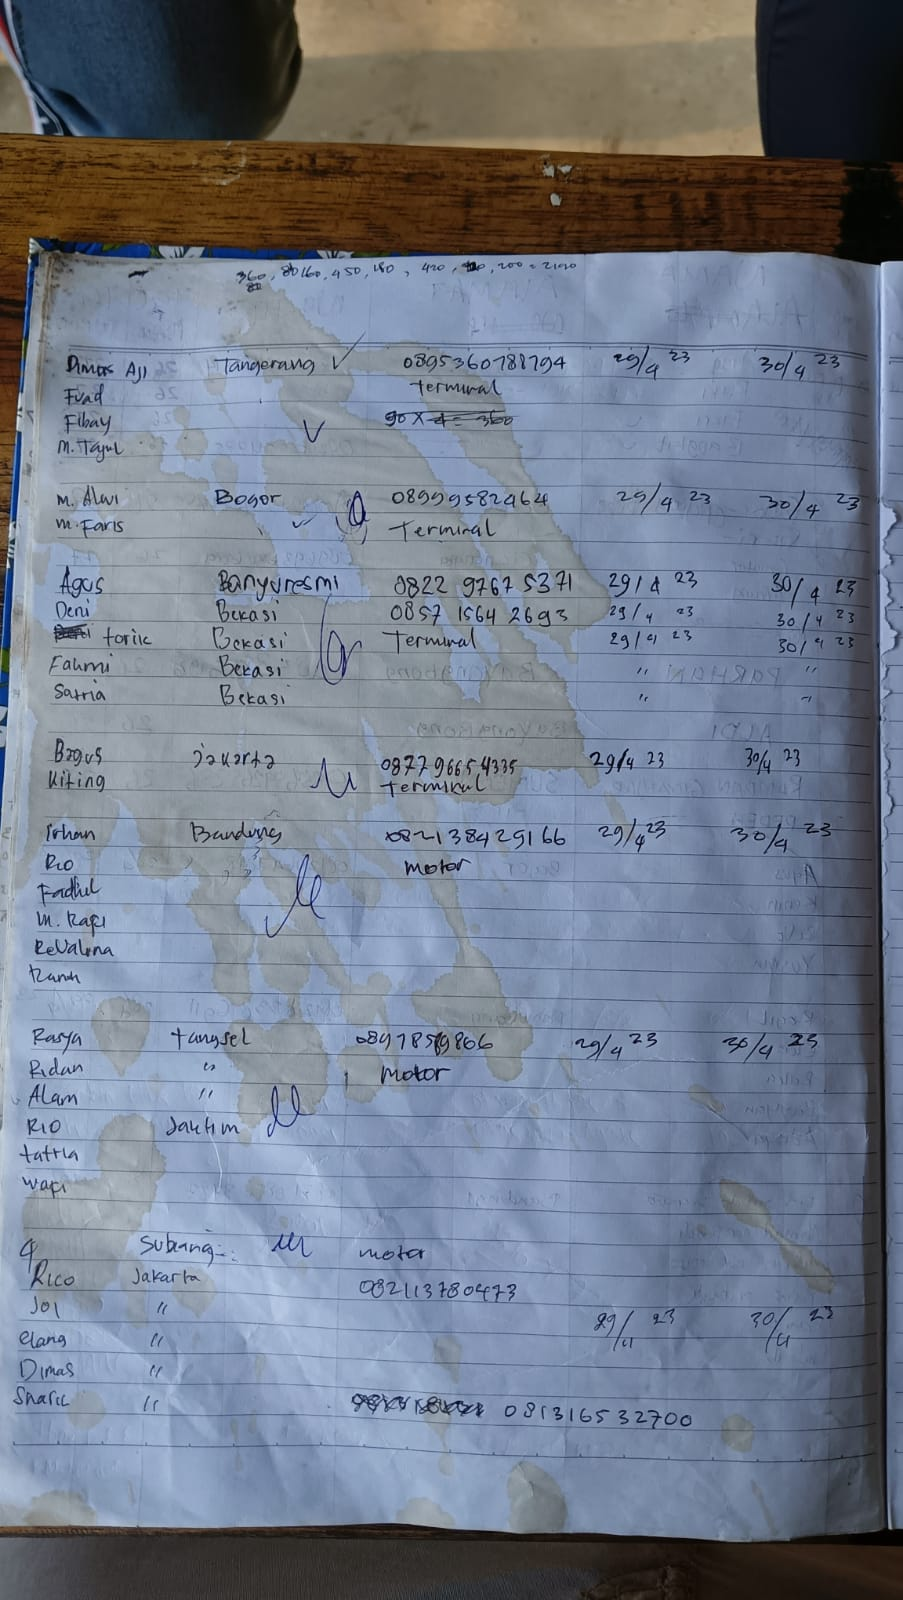 360, 80 160, 450, 180, 420, 200 = 2190
Dimas Aji Tangerang 0895360788794 29/4 23 30/4 23
Fuad Terminal
Fibay 90 x 4 = 360
M. Tajul
M. Alwi Bogor 08999582464 29/4 23 30/4 23
M. Faris Terminal
Agus Banyuresmi 0822 9767 5371 29/4 23 30/4 23
Deni Bekasi 0857 1564 2693 29/4 23 30/4 23
toric Bekasi Terminal 29/4 23 30/4 23
Fahmi Bekasi " "
Satria Bekasi " "
Bagus Jakarta 087796654335 29/4 23 30/4 23
Kiting Terminal
Irhan Bandung 082138429166 29/4 23 30/4 23
Rio motor
Fadhil
M. Rapi
Revalina
Rasya Tangsel 29/4 23 30/4 23
Ridan " motor
Alam "
Rio Jaktim
tatria
wapi
Subang motor
Rico Jakarta 082113780473
Joi " 29/4 23 30/4 23
elang "
Dimas "
" 081316532700